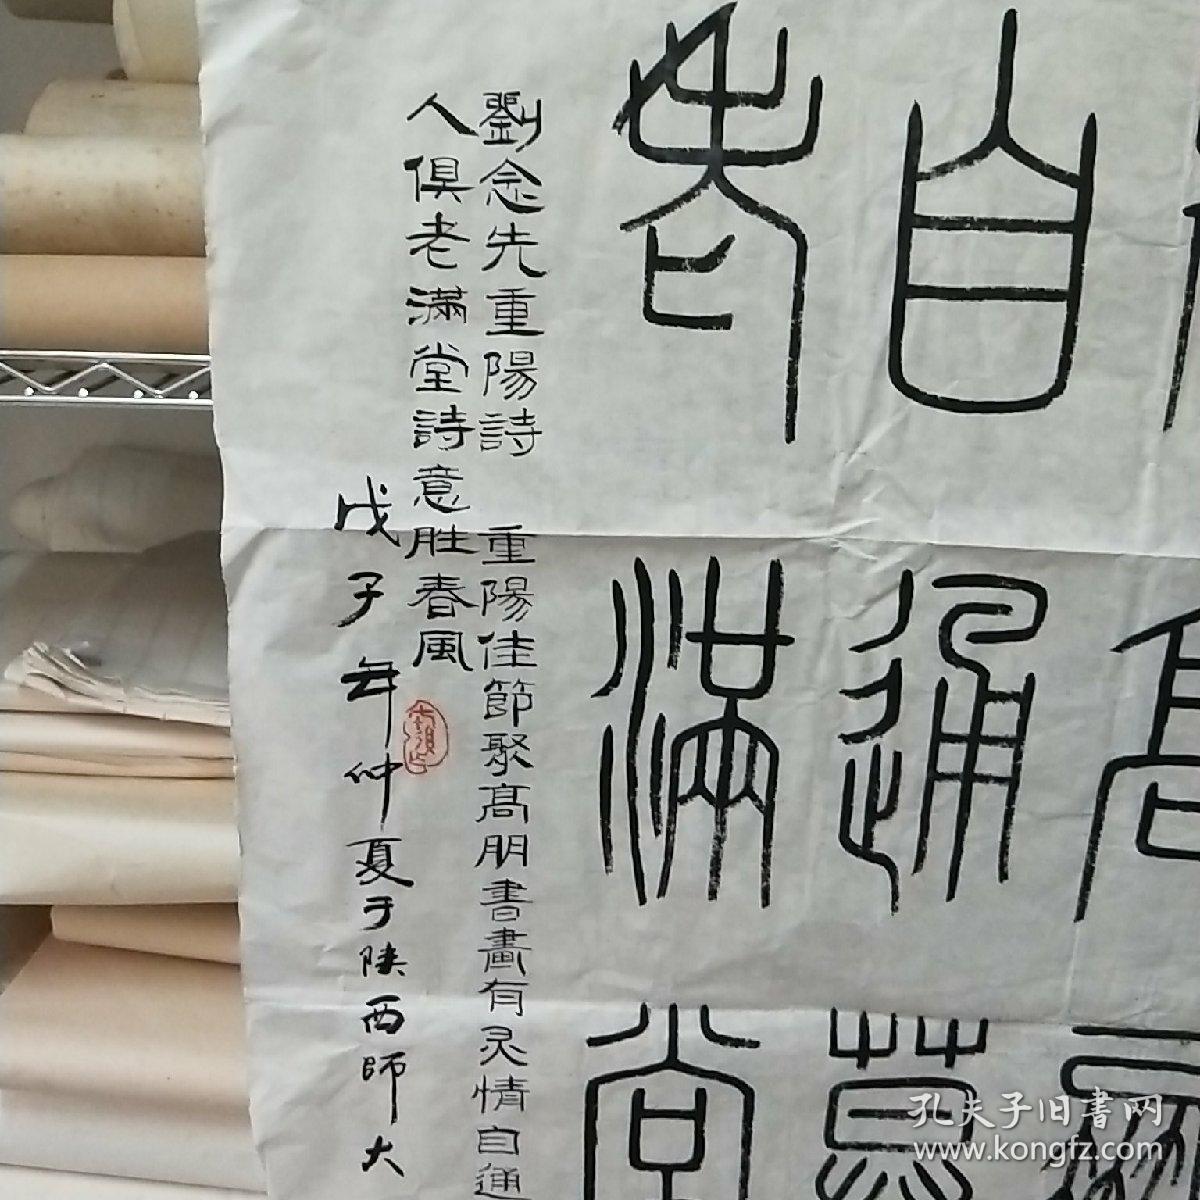 高
自通
老滿堂
劉念先重陽詩 重陽佳節聚高朋書畫有灵情自通
人俱老滿堂詩意胜春風
戊子年仲夏于陕西師大
孔夫子旧書网
www.kongfz.com